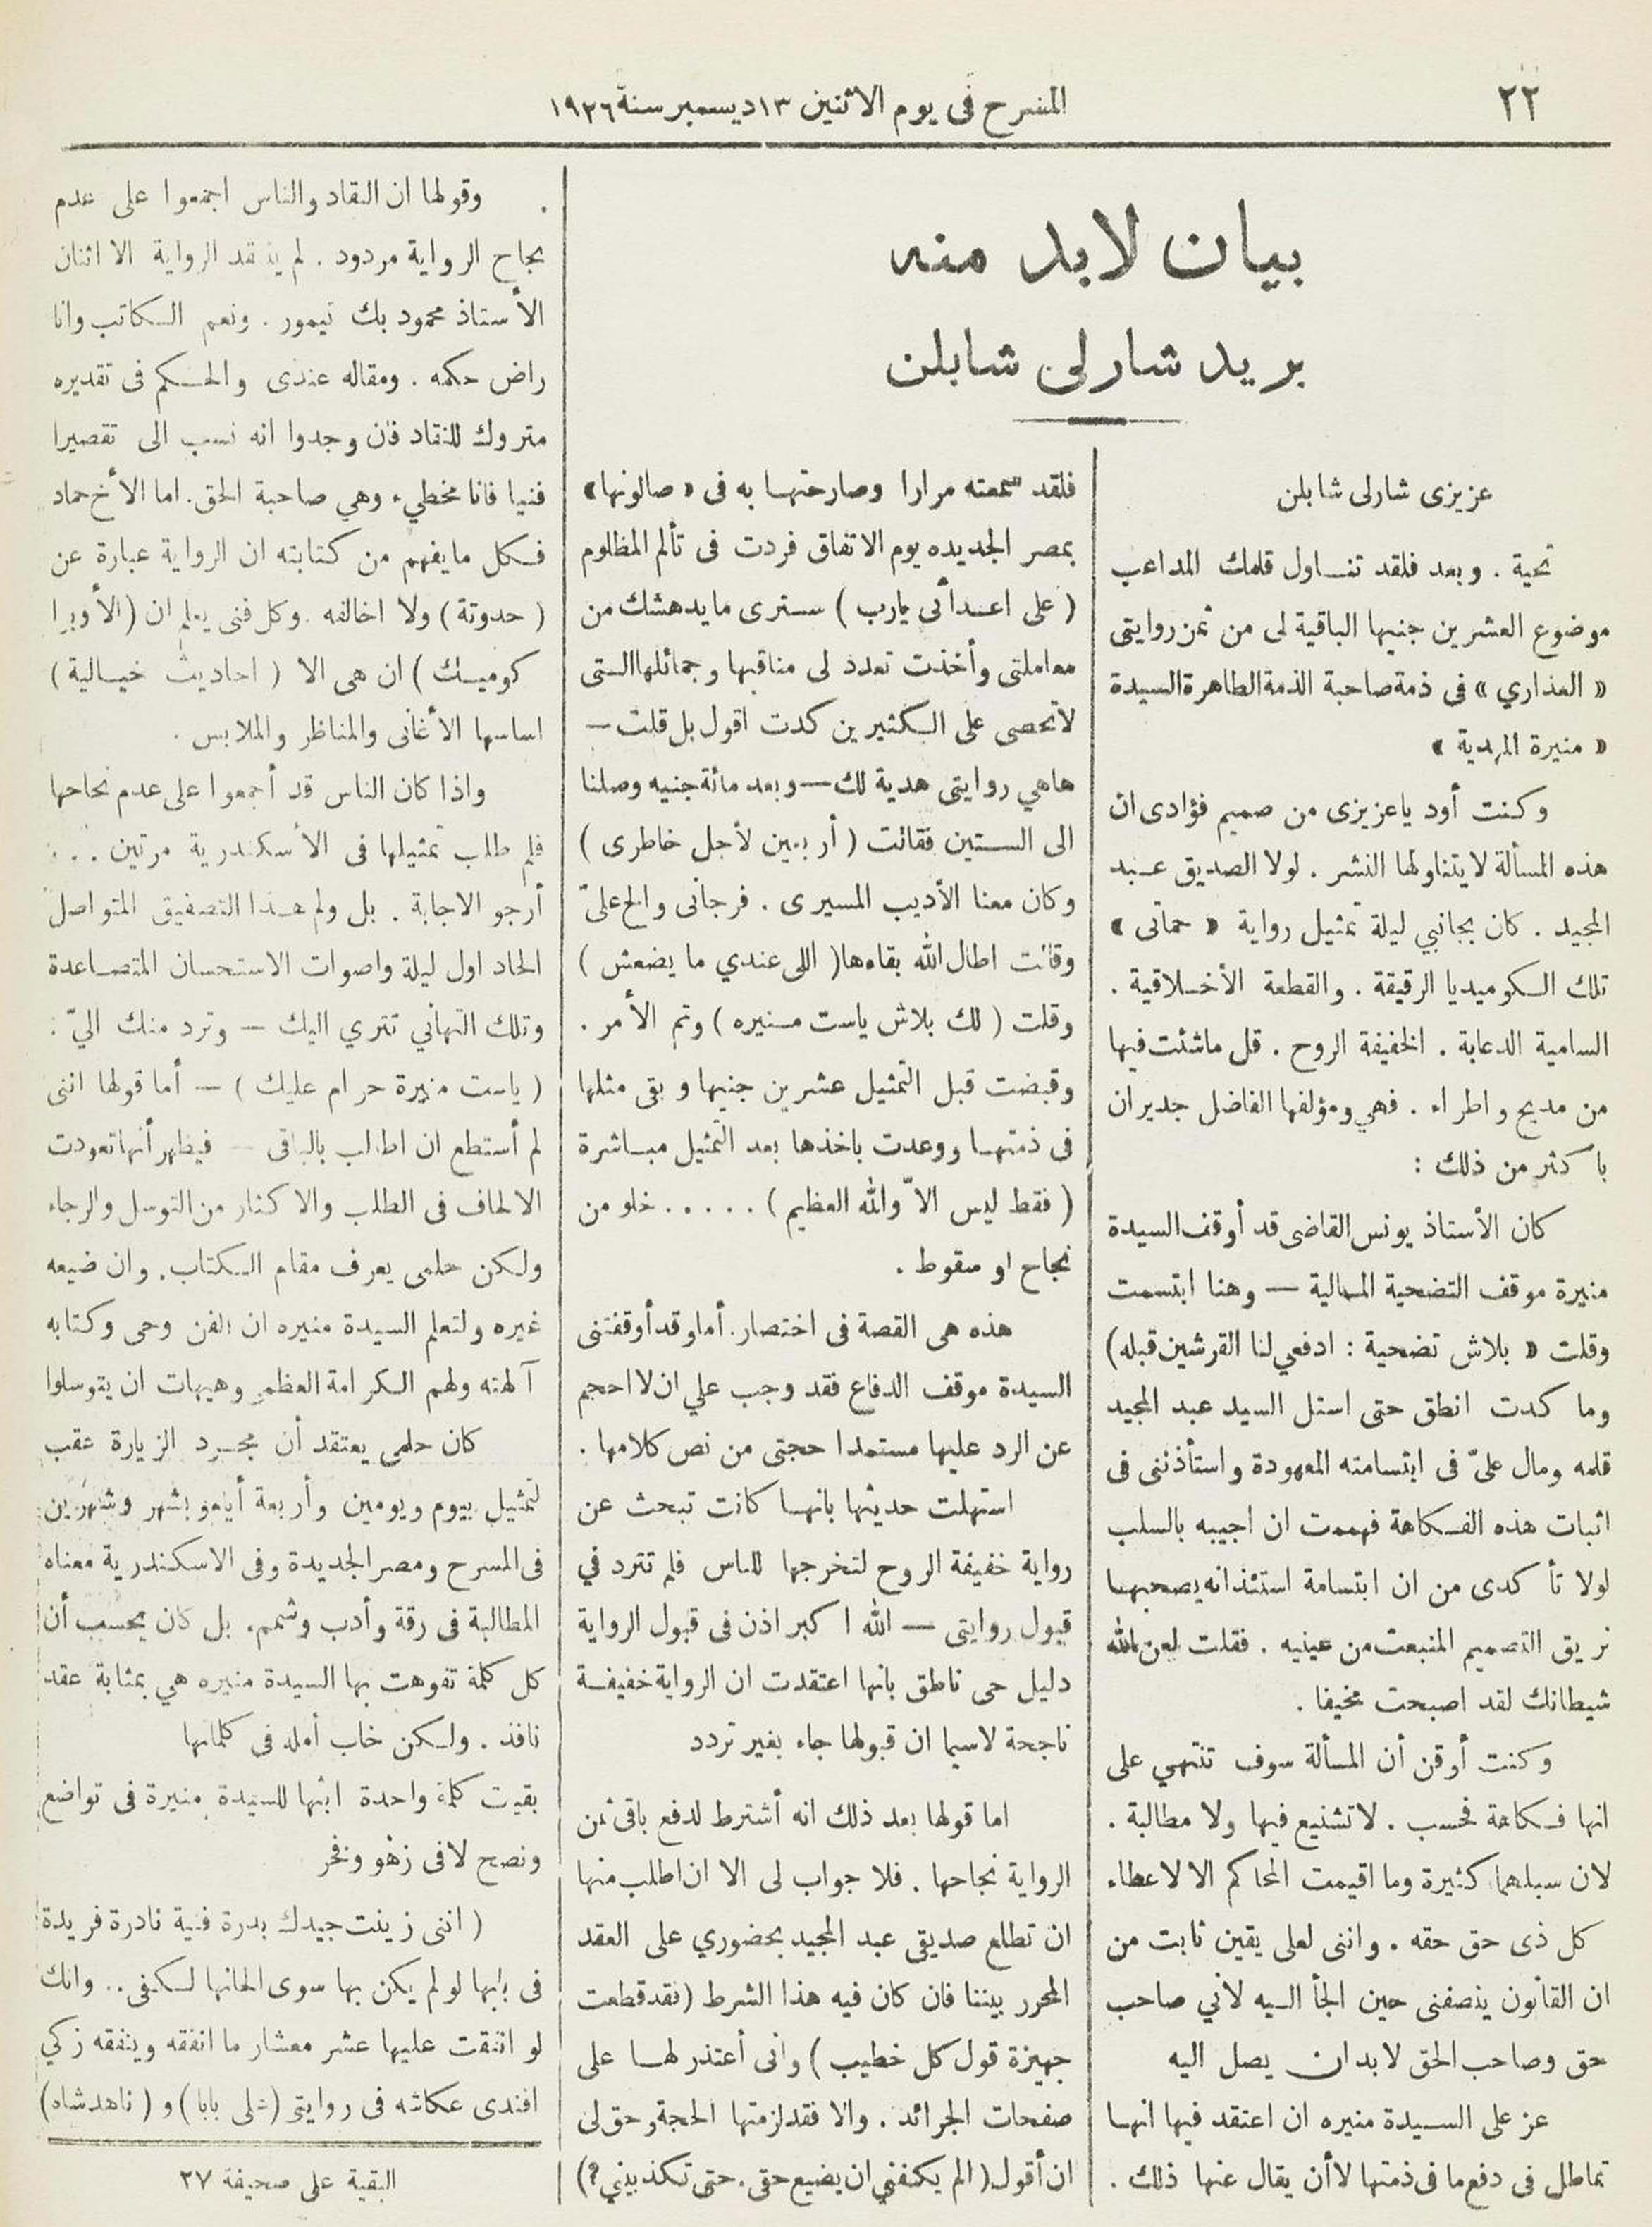 ٢٢
المسرح فى يوم الاثنين ١٣ ديسمبر سنة ١٩٢٦
بيان لابد منه
بريد شارلى شابلن
عزيزى شارلى شابلن
تحية . وبعد فلقد تنـاول قلمك المداعب
موضوع العشرين جنيها الباقية لى من ثمن روايتى
« العذاري » فى ذمة صاحبة الذمة الطاهرة السيدة
« منيرة المهدية »
وكنت أود ياعزيزى من صميم فؤادى ان
هذه المسألة لايتناولها النشر . لولا الصديق عـبد
المجيد . كان بجانبي ليلة تمثيل رواية « حماتى »
تلك الـكوميديا الرقيقة . والقطعة الأخـلاقية .
السامية الدعابة . الخفيفة الروح . قل ماشئت فيها
من مديح واطراء . فهي ومؤلفها الفاضل جديران
باكثر من ذلك :
كان الأستاذ يونس القاضى قد أوقف السيدة
منيرة موقف التضحية المـالية — وهنا ابتسمت
وقلت « بلاش تضحية : ادفعي لنا القرشين قبله)
وما كدت انطق حتى استل السيد عبد المجيد
قلمه ومال علىّ فى ابتسامته المعهودة واستأذننى فى
اثبات هذه الفـكاهة فهممت ان اجيبه بالسلب
لولا تأكدى من ان ابتسامة استئذانه يصحبهـا
بريق التصميم المنبعث من عينيه . فقلت لعن الله
شيطانك لقد اصبحت مخيفا .
وكنت أوقن أن المسألة سوف تنتهي على
انها فـكاهة فحسب . لاتشنيع فيها ولا مطالبة .
لان سبلهما كثيرة وما اقيمت المحاكم الا لاعطاء
كل ذى حق حقه . واننى لعلى يقين ثابت من
ان القانون ينصفنى حين الجأ الـيه لأني صاحب
حق وصاحب الحق لابد ان يصل اليه
عز على السـيدة منيره ان اعتقد فيها انهـا
تماطل فى دفع ما فى ذمتها لا أن يقال عنها ذلك .
فلقد سمعته مرارا وصارحتهـا به فى « صالونها»
بمصر الجديده يوم الاتفاق فردت فى تألم المظلوم
( على اعـدائى يارب ) سـترى مايدهشك من
معاملتى وأخذت تعدد لى مناقبها وجمائلها الـتى
لاتحصى على الـكثيرين كدت اقول بل قلت —
هاهي روايتى هدية لك — وبعد مائة جنيه وصلنا
الى السـتين فقالت ( أربعين لأجل خاطرى )
وكان معنا الأديب المسيرى . فرجانى والح علىّ
وقالت اطال الله بقاءها( اللى عندي ما يضعش )
وقلت ( لك بلاش ياست مـنيره ) وتم الأمر .
وقبضت قبل التمثيل عشرين جنيها وبقى مثلها
فى ذمتهـا ووعدت باخذها بعد التمثيل مبـاشرة
( فقط ليس الاّ والله العظيم ) ..... خلو من
نجاح او سقوط .
هذه هى القصة فى اختصار. أما وقد أوقفتنى
السيدة موقف الدفاع فقد وجب علي ان لا احجم
عن الرد عليها مستمدا حجتى من نص كلامها .
استهلت حديثها بانهـا كانت تبحث عن
رواية خفيفة الروح لتخرجها للناس فلم تتردد في
قبول روايتى — الله اكبر اذن فى قبول الرواية
دليل حى ناطق بانها اعتقدت ان الرواية خفيفـة
ناجحة لاسيما ان قبولها جاء بغير تردد
اما قولها بعد ذلك انه أشترط لدفع باقى ثمن
الرواية نجاحها . فلا جواب لى الا ان اطلب منها
ان تطلع صديقى عبد المجيد بحضوري على العقد
المحرر بيننا فان كان فيه هذا الشرط (فقد قطعت
جهيزة قول كل خطيب ) وانى أعتذر لهـا على
صفحات الجرائد . والا فقد لزمتها الحجة وحق لى
ان أقول ( الم يكفني ان يضيع حقى . حتى تكذبيني ؟)
وقولها ان النقاد والناس اجمعوا على عدم
نجاح الرواية مردود . لم ينقد الرواية الا اثنان
الأستاذ محمود بك تيمور . ونعم الـكاتب وانا
راض حكمه . ومقاله عندى والحـكم فى تقديره
متروك للنقاد فان وجدوا انه نسب الى تقصيرا
فنيا فانا مخطيء وهي صاحبة الحق. اما الأخ حماد
فـكل مايفهم من كتابته ان الرواية عبارة عن
( حدوتة ) ولا اخالفه . وكل فنى يعلم ان (الأوبرا
كوميـك ) ان هى الا ( احاديث خيـالية )
اساسها الأغانى والمناظر والملابس .
واذا كان الناس قد أجمعوا على عدم نجاحها
فلم طلب تمثيلها فى الأسكـندرية مرتين ...
أرجو الاجابة . بل ولم هـذا التصفيق المتواصل
الحاد اول ليلة واصوات الاستحسان المتصـاعدة
وتلك التهاني تترى اليك — وترد منك اليّ :
( ياست منيرة حرام عليك ) — أما قولها اننى
لم أستطع ان اطالب بالباقى — فيظهر أنها تعودت
الالحاف فى الطلب والاكثار من التوسل والرجاء
ولـكن حلمى يعرف مقام الـكتاب. وان ضيعه
غيره ولتعلم السيدة منيره ان الفن وحى وكتابه
آلهته ولهم الـكرامة العظمى وهيهات ان يتوسلوا
كان حلمى يعتقد أن مجـرد الزيارة عقب
التمثيل بيوم ويومين وأربعة أيام وبشهر وشهرين
فى المسرح ومصر الجديدة وفى الاسكندرية معناه
المطالبة فى رقة وأدب وشمم. بل كان يحسب أن
كل كلمة تفوهت بها السيدة منيره هي بمثابة عقد
نافذ . ولـكن خاب أمله فى كلماتها
بقيت كلمة واحدة ابثها للسيدة منيرة فى تواضع
ونصح لافى زهو وفخر
( اننى زينت جيدك بدرة فنية نادرة فريدة
فى بابها لو لم يكن بها سوى الحانها لـكفى .. وانك
لو انفقت عليها عشر معشار ما انفقه وينفقه زكي
افندى عكاشه فى روايتى (على بابا) و ( ناهد شاه)
البقية على صحيفة ٢٧